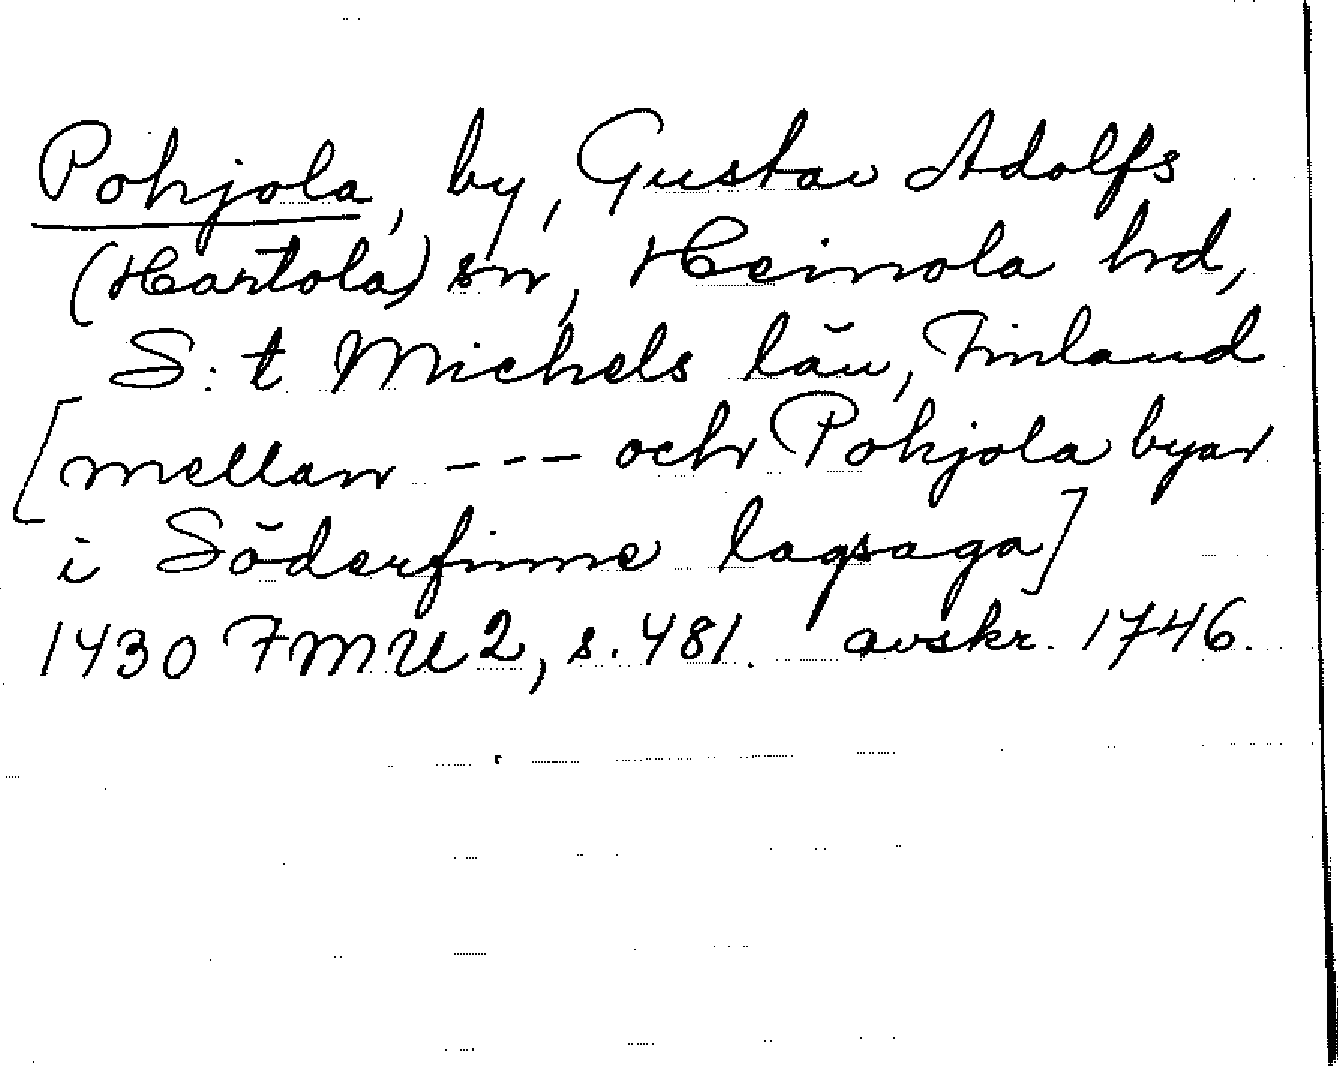 Pohjola, by, Gustav Adolfs
(Hartola) sn, Heinola hd,
S:t Michels län, Finland
[mellan --- och Pohjola byar
i Söderfinne lagsaga]
1430 FMU 2, s. 481. avskr. 1746.